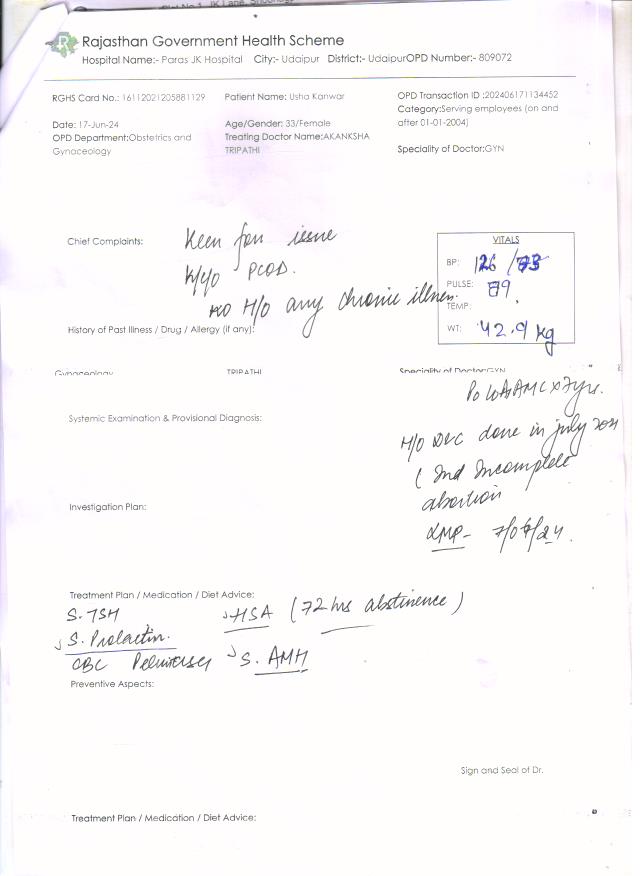 Rajasthan Government Health Scheme
Hospital Name:- Paras JK Hospital City:- Udaipur District:- UdaipurOPD Number:- 809072
RGHS Card No.: 16112021205881129
Patient Name: Usha Kanwar
OPD Transaction ID :202406171134452
Category:Serving employees (on and
after 01-01-2004)
Date: 17-Jun-24
Age/Gender: 33/Female
OPD Department:Obstetrics and
Gynaceology
Treating Doctor Name:AKANKSHA
TRIPATHI
Speciality of Doctor:GYN
Chief Complaints:
Keen for issue
K/y/o PCOD.
No H/O any chronic illness.
VITALS
BP: 126/73
PULSE: 89
TEMP:
WT: 42.9 kg
History of Past Illness / Drug / Allergy (if any):
Gynaceology TRIPATHI Speciality of Doctor:GYN
Systemic Examination & Provisional Diagnosis:
H/O D&C done in july 2021
Incomplete
abortion
LMP- 7/06/24.
Investigation Plan:
Treatment Plan / Medication / Diet Advice:
S. TSH HSA (72 hrs abstinence)
S. Prolactin.
CBC S. AMH
Preventive Aspects:
Sign and Seal of Dr.
Treatment Plan / Medication / Diet Advice: